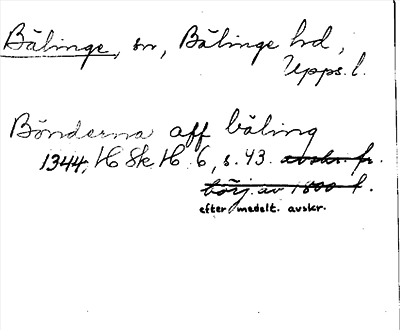 Bälinge, sn, Bälinge hd,
Upps. l.
Bönderna aff bäling
1344, H Sk H 6, s. 43. avskr. fr.
börj. av 1800 t.
efter medelt. avskr.